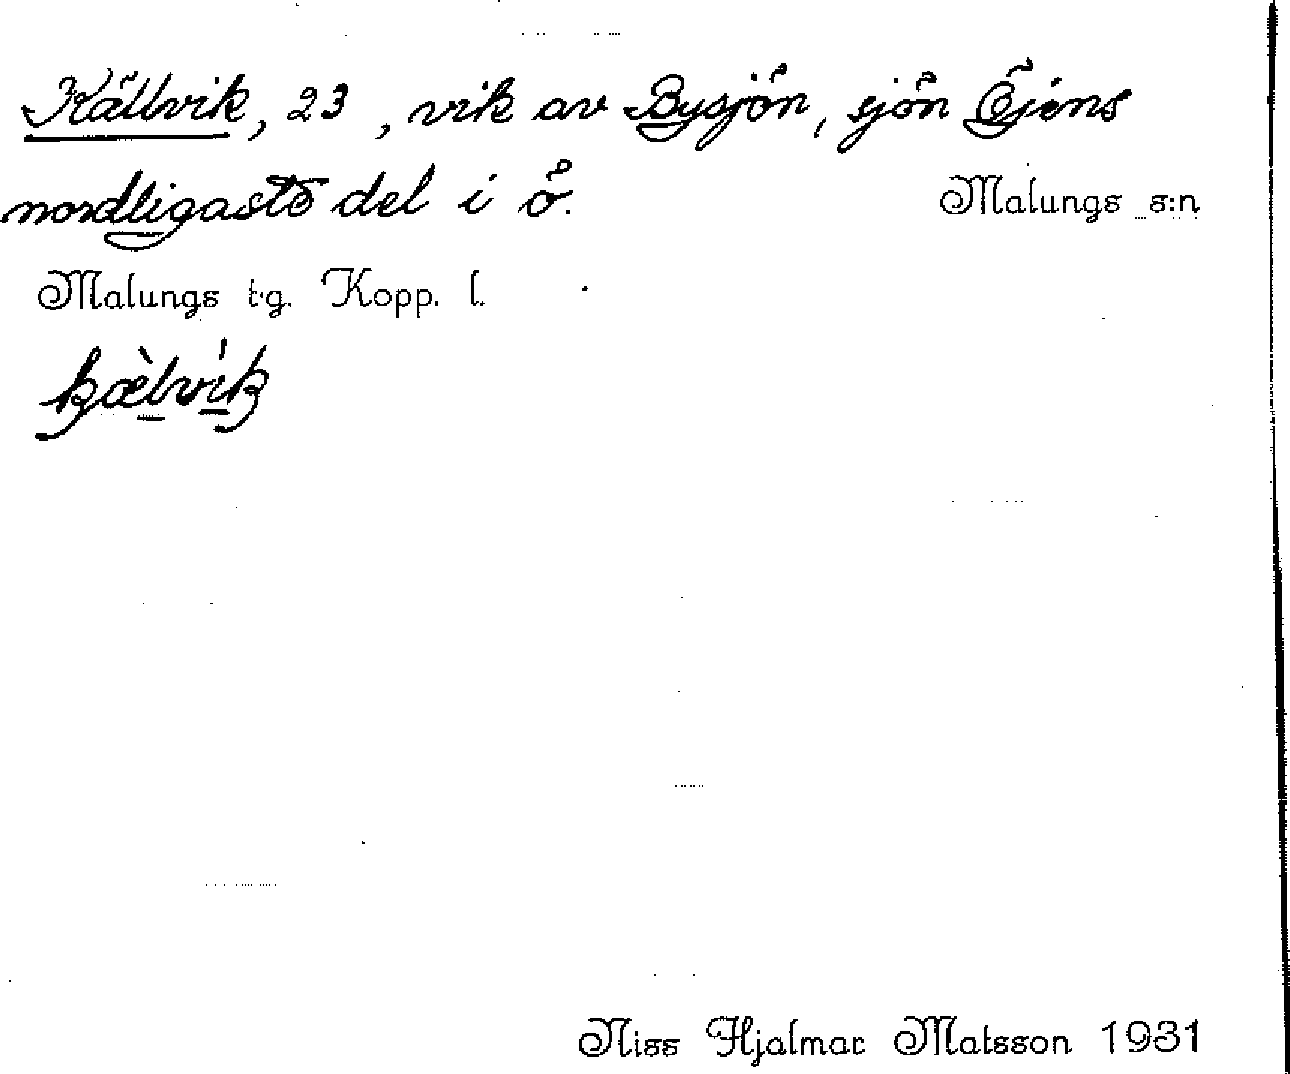 Källvik, 23, vik av Bysjön, sjön Öjens
nordligaste del i å. Malungs s:n
Malungs t.g. Kopp. l.
kæ̀lvík
Niss Hjalmar Matsson 1931